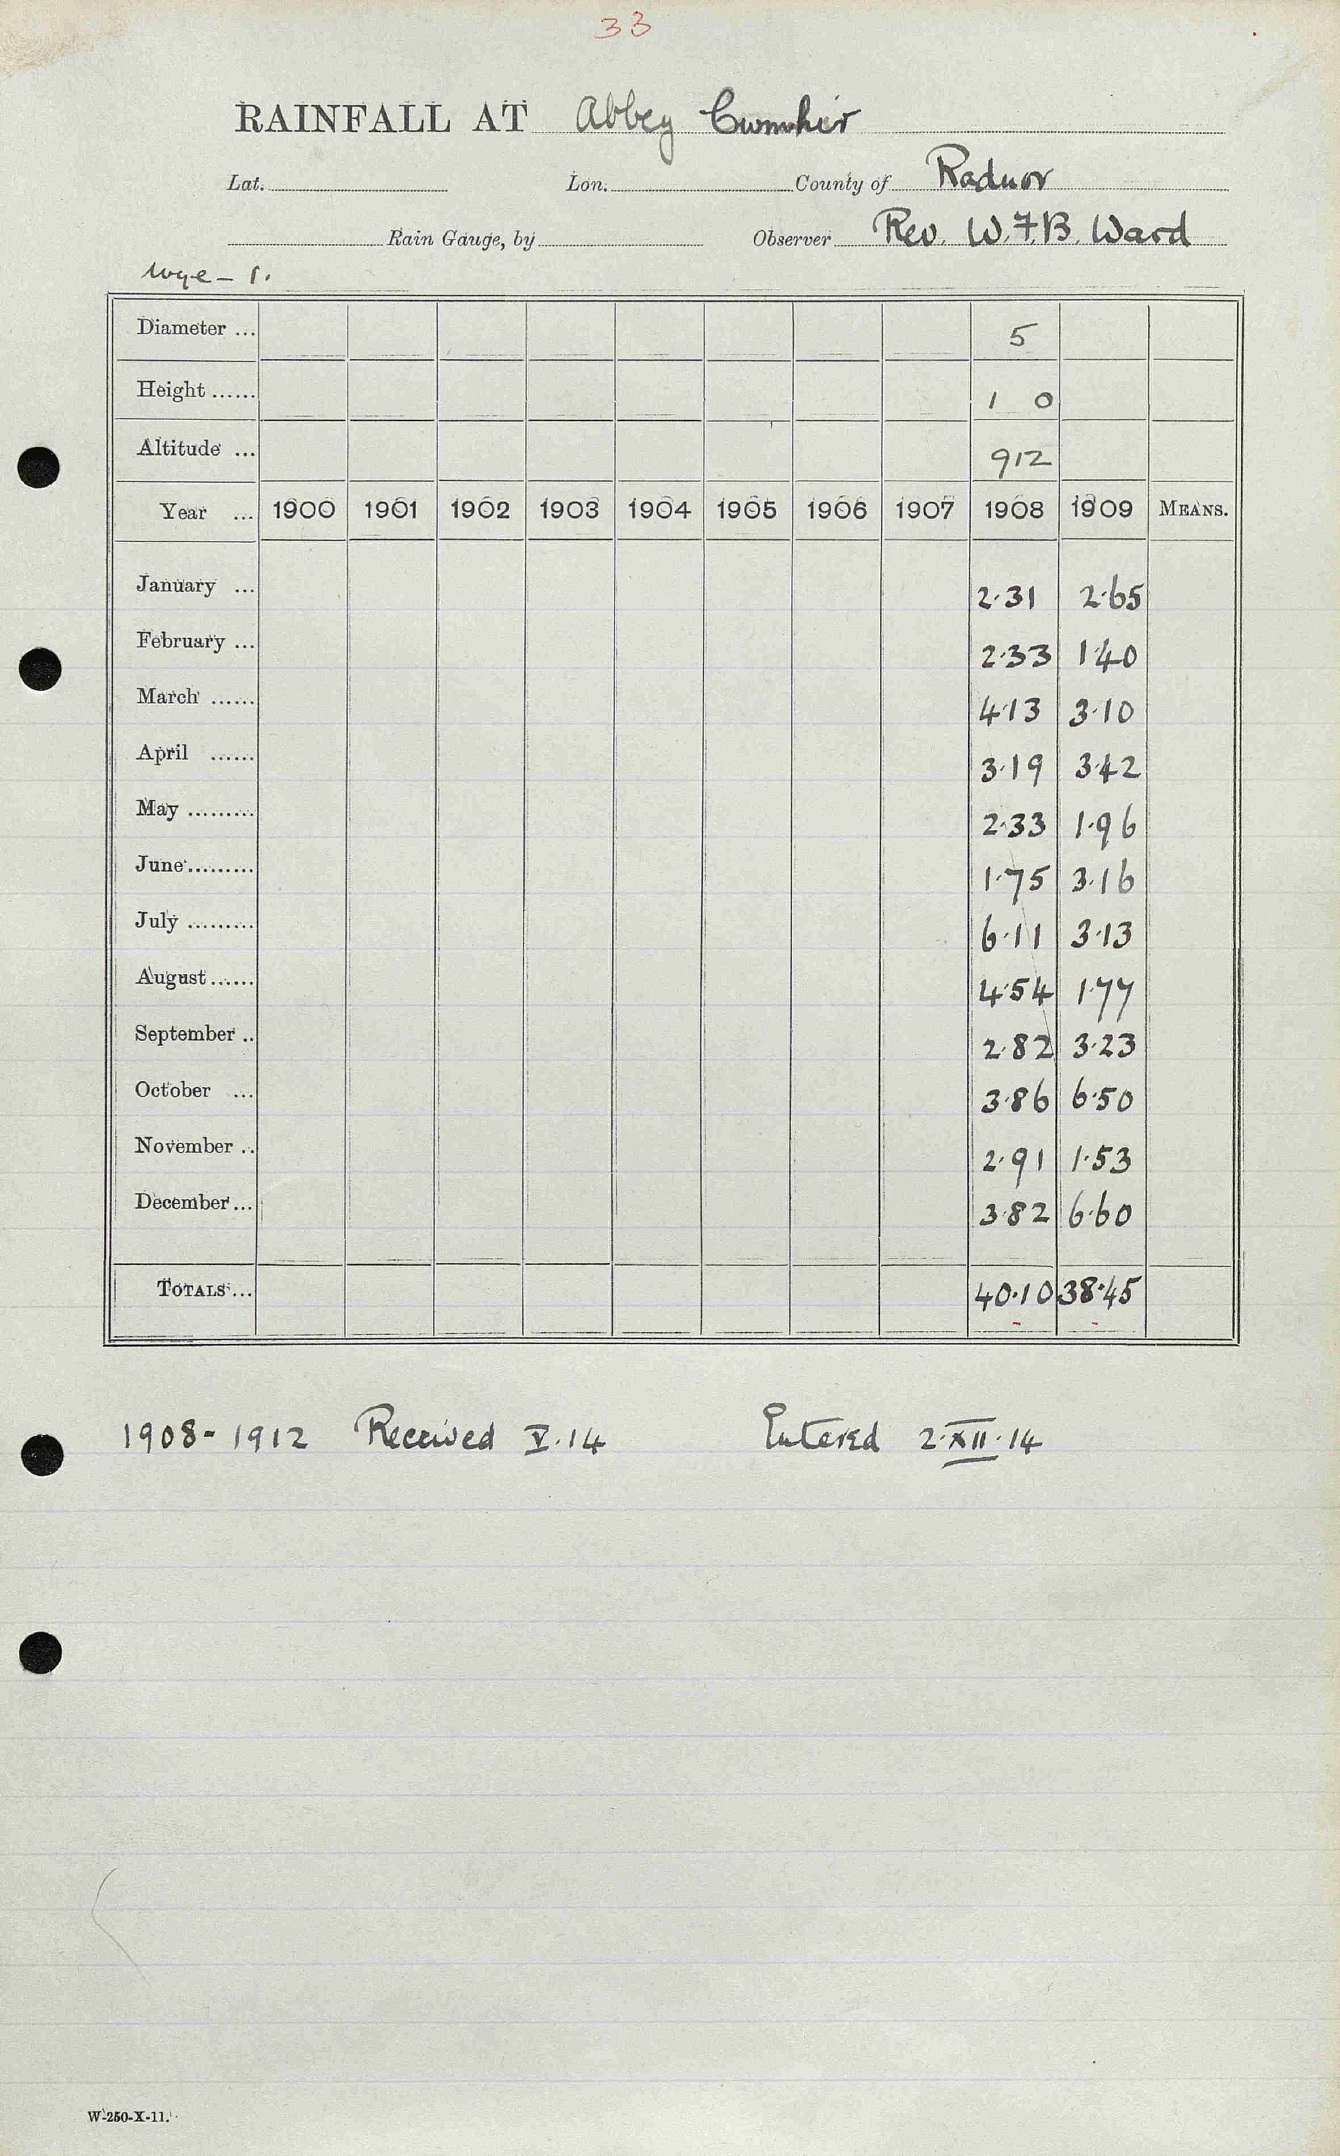 33
RAINFALL AT Abbey Cwmhir
Lat. Lon. County of Radnor
Rain Gauge, by Observer Rev. W.F.B. Ward
Wye - 1.
Diameter ... 5
Height ...... 1 0
Altitude ... 912
Year ... 1900 1901 1902 1903 1904 1905 1906 1907 1908 1909 MEANS.
January ... 2.31 2.65
February ... 2.33 1.40
March ...... 4.13 3.10
April ...... 3.19 3.42
May ......... 2.33 1.96
June ......... 1.75 3.16
July ......... 6.11 3.13
August ...... 4.54 1.77
September .. 2.82 3.23
October ... 3.86 6.50
November .. 2.91 1.53
December ... 3.82 6.60
TOTALS ... 40.10 38.45
1908-1912 Received V.14 Entered 2.XII.14
W-250-X-11.